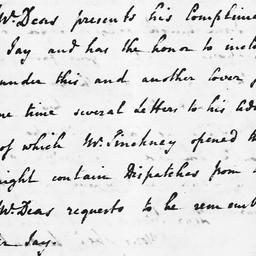 Mr Deas presents his Complime
Jay and has the honor to inclo
under this and another cover
me time several Letters to his ad
of which Mr. Pinckney opened th
ight contain Dispatches from
Mr Deas requests to be remem
Jay.